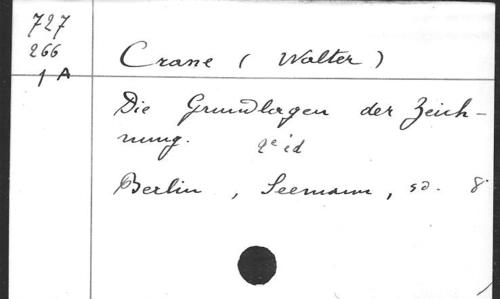 727
266
1 A
Crane ( Walter )
Die Grundlagen der Zeich-
nung. 2e éd
Berlin, Seemann, sd. 8°